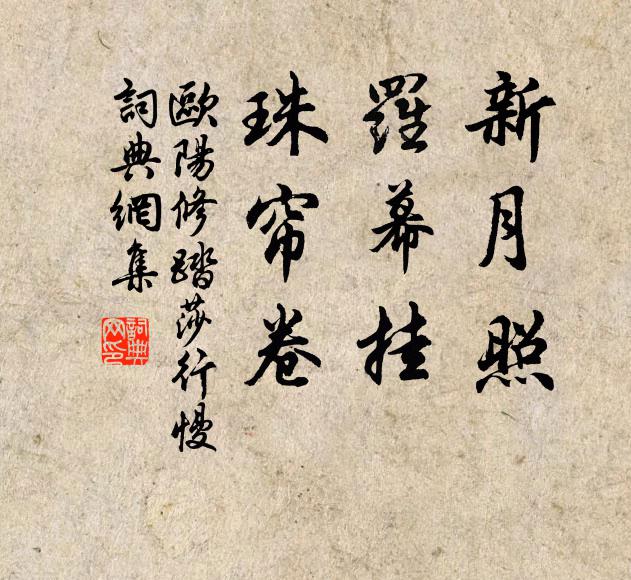 新月照
羅幕挂
珠帘卷
歐陽修踏莎行慢
詞典網集
詞典
网印